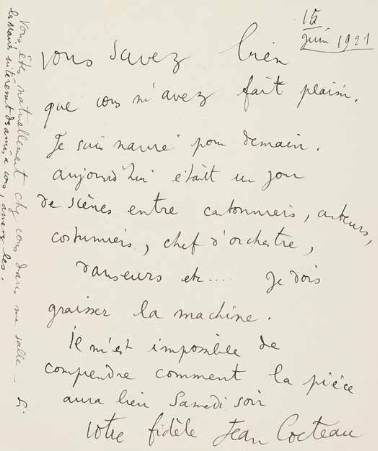 15
juin 1921
Vous savez bien
que vous m'avez fait plaisir.
Je suis navré pour demain.
aujourd'hui était un jour
de scènes entre cartonniers, auteurs,
costumiers, chef d'orchestre,
danseurs etc.... Je dois
graisser la machine.
Il m'est impossible de
comprendre comment la pièce
aura lieu Samedi soir
Votre fidèle Jean Cocteau
Vous êtes naturellement chez vous dans ma salle - Si
cela intéresse des amis à vous, amenez les.